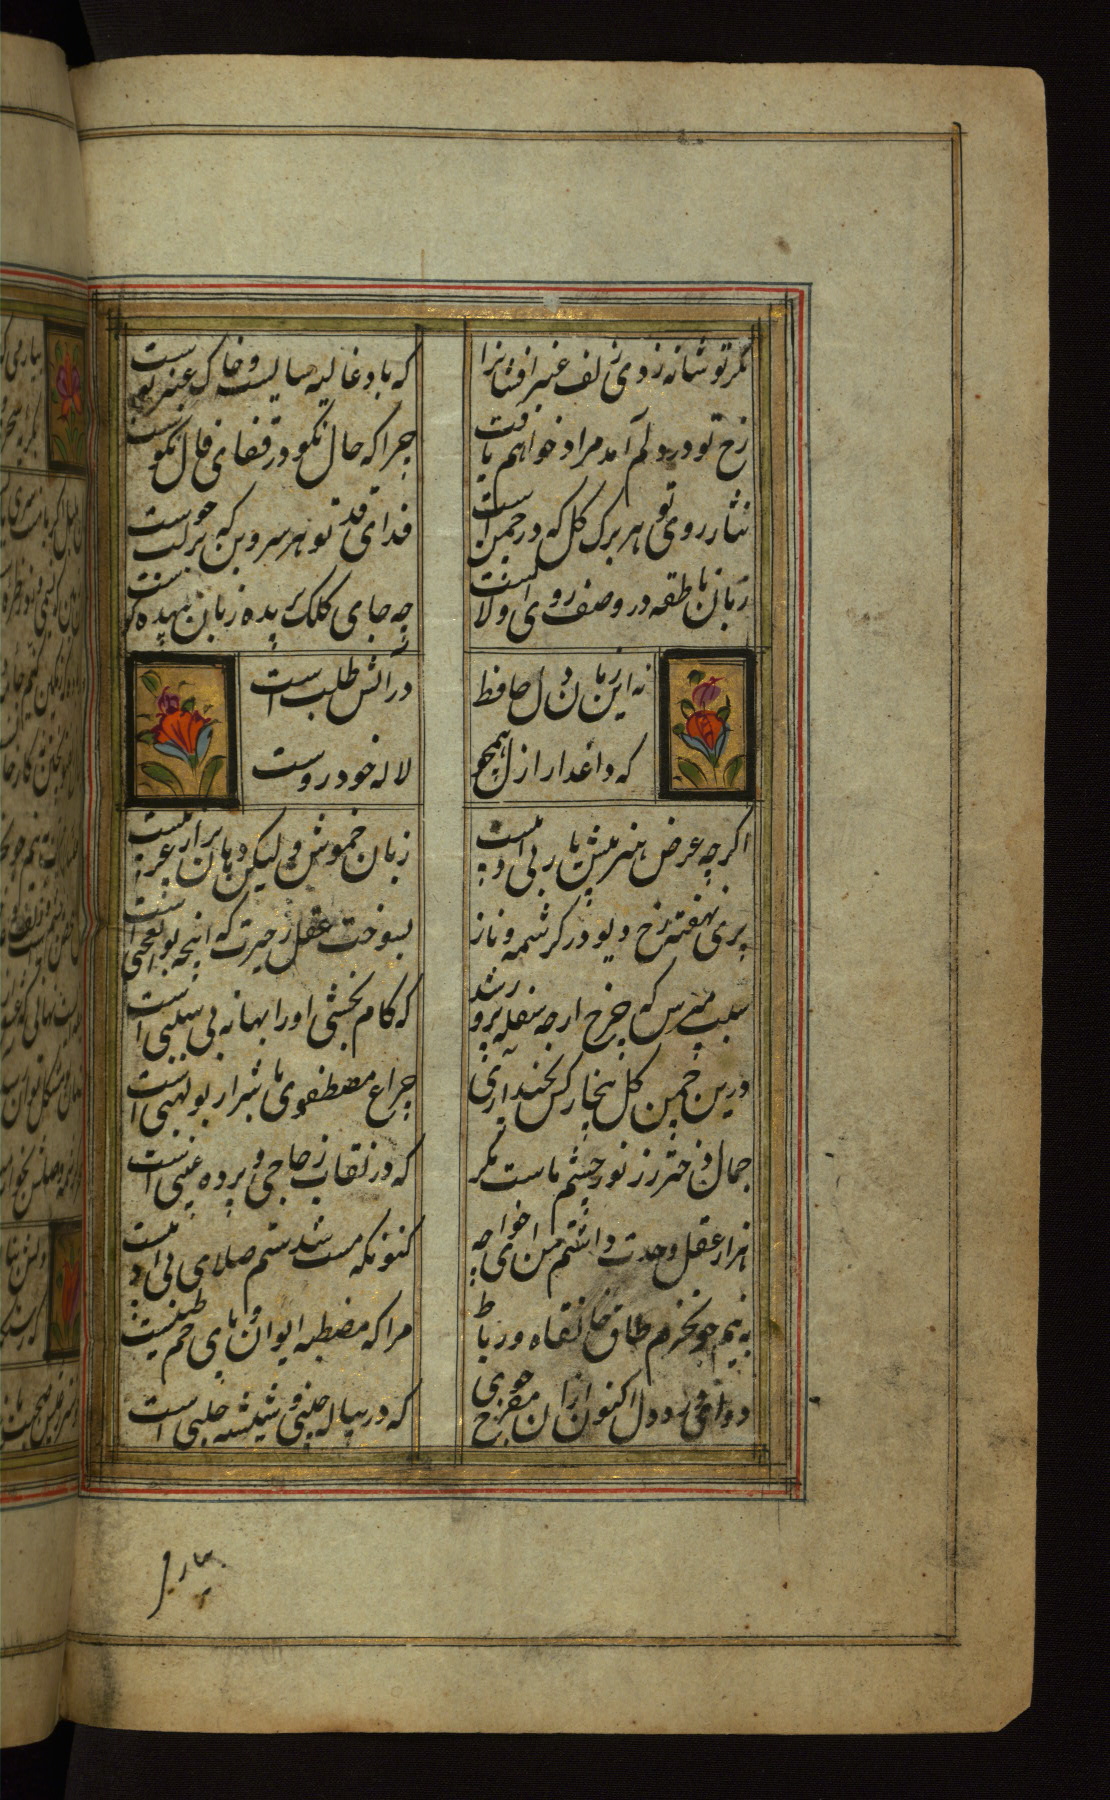 مگر تو شانه زدی زلف عنبر افشانرا
که باد غالیه سایست و خاک عنبر بوست
رخ تو در دلم آمد مراد خواهم یافت
چرا که حال نکو در قفای فال نکوست
نثار روی تو هر برک کل که در چمن است
فدای قد تو هر سرو بن که بر لب جوست
زبان ناطقه در وصف روی او لالست
چه جای کلک بریده زبان بیهده کوست
نه این زمان دل حافظ
در آتش طلب است
که داغدار ازل همچو
لاله خودروست
اکرچه عرض هنر پیش یار بی ادبیست
زبان خموش ولیکن دهان پر از عربیست
پری نهفته رخ و دیو در کرشمه و ناز
بسوخت عقل ز حیرت که اینچه بوالعجبی است
سبب مپرس که چرخ از چه سفله پرور شد
که کام بخشی او را بهانه بی سببی است
درین چمن کل بیخار کس نچید آری
چراغ مصطفوی با شرار بولهبی است
جمال دختر رز نور چشم ماست مکر
که در نقاب زجاجی و پرده عنبی است
هزار عقل و ادب داشتم من ای خواجه
کنونکه مست شدستم صلای بی ادبیست
به نیم جو نخرم طاق خانقاه و رباط
مرا که مصطبه ایوان و پای خم طنبیست
دوای درد دل اکنون ازان مفرح جوی
که در پیاله چینی و شیشه حلبی است
بیار می